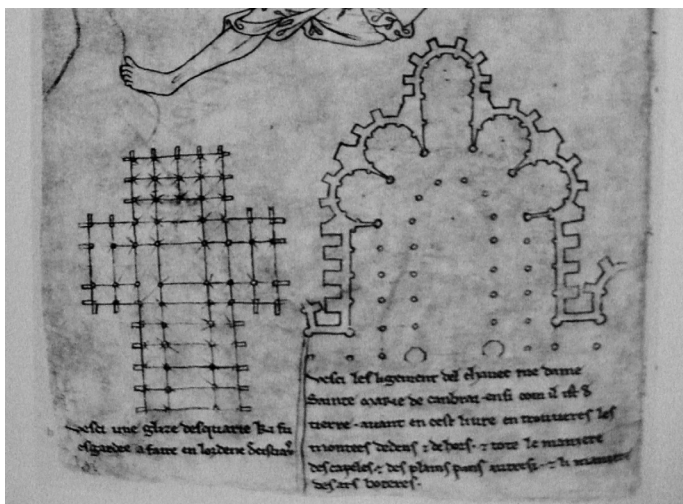 Vesci une glize desquarie ki fu
esgardee a faire en lordene
Vesci les ligement del chavec me dame
Sainte Marie de canbrai ensi com il ist de
tierre. avant en cest livre en trouveres les
montees dedens & dehors. & tote le maniere
des capeles. & des plains pans autresi. & li maniere
des ars boteres.